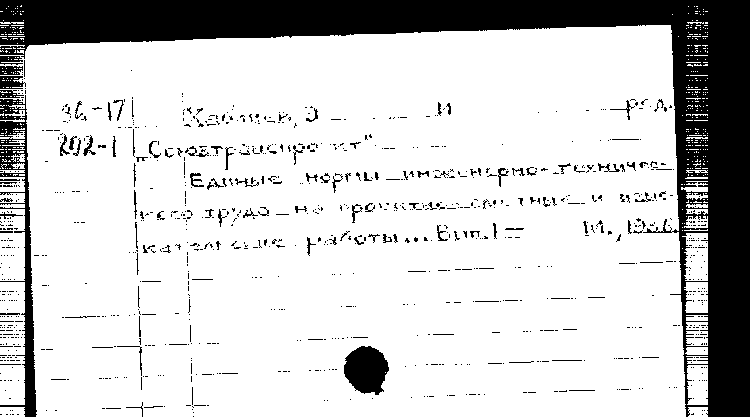 36-17 Э И ред.
202-1 „Союзтранспроект"
Единые нормы инженерно-техничес-
кого труда на проектно-сметные и изыс-
кательские работы... Вып. I – М., 1936.